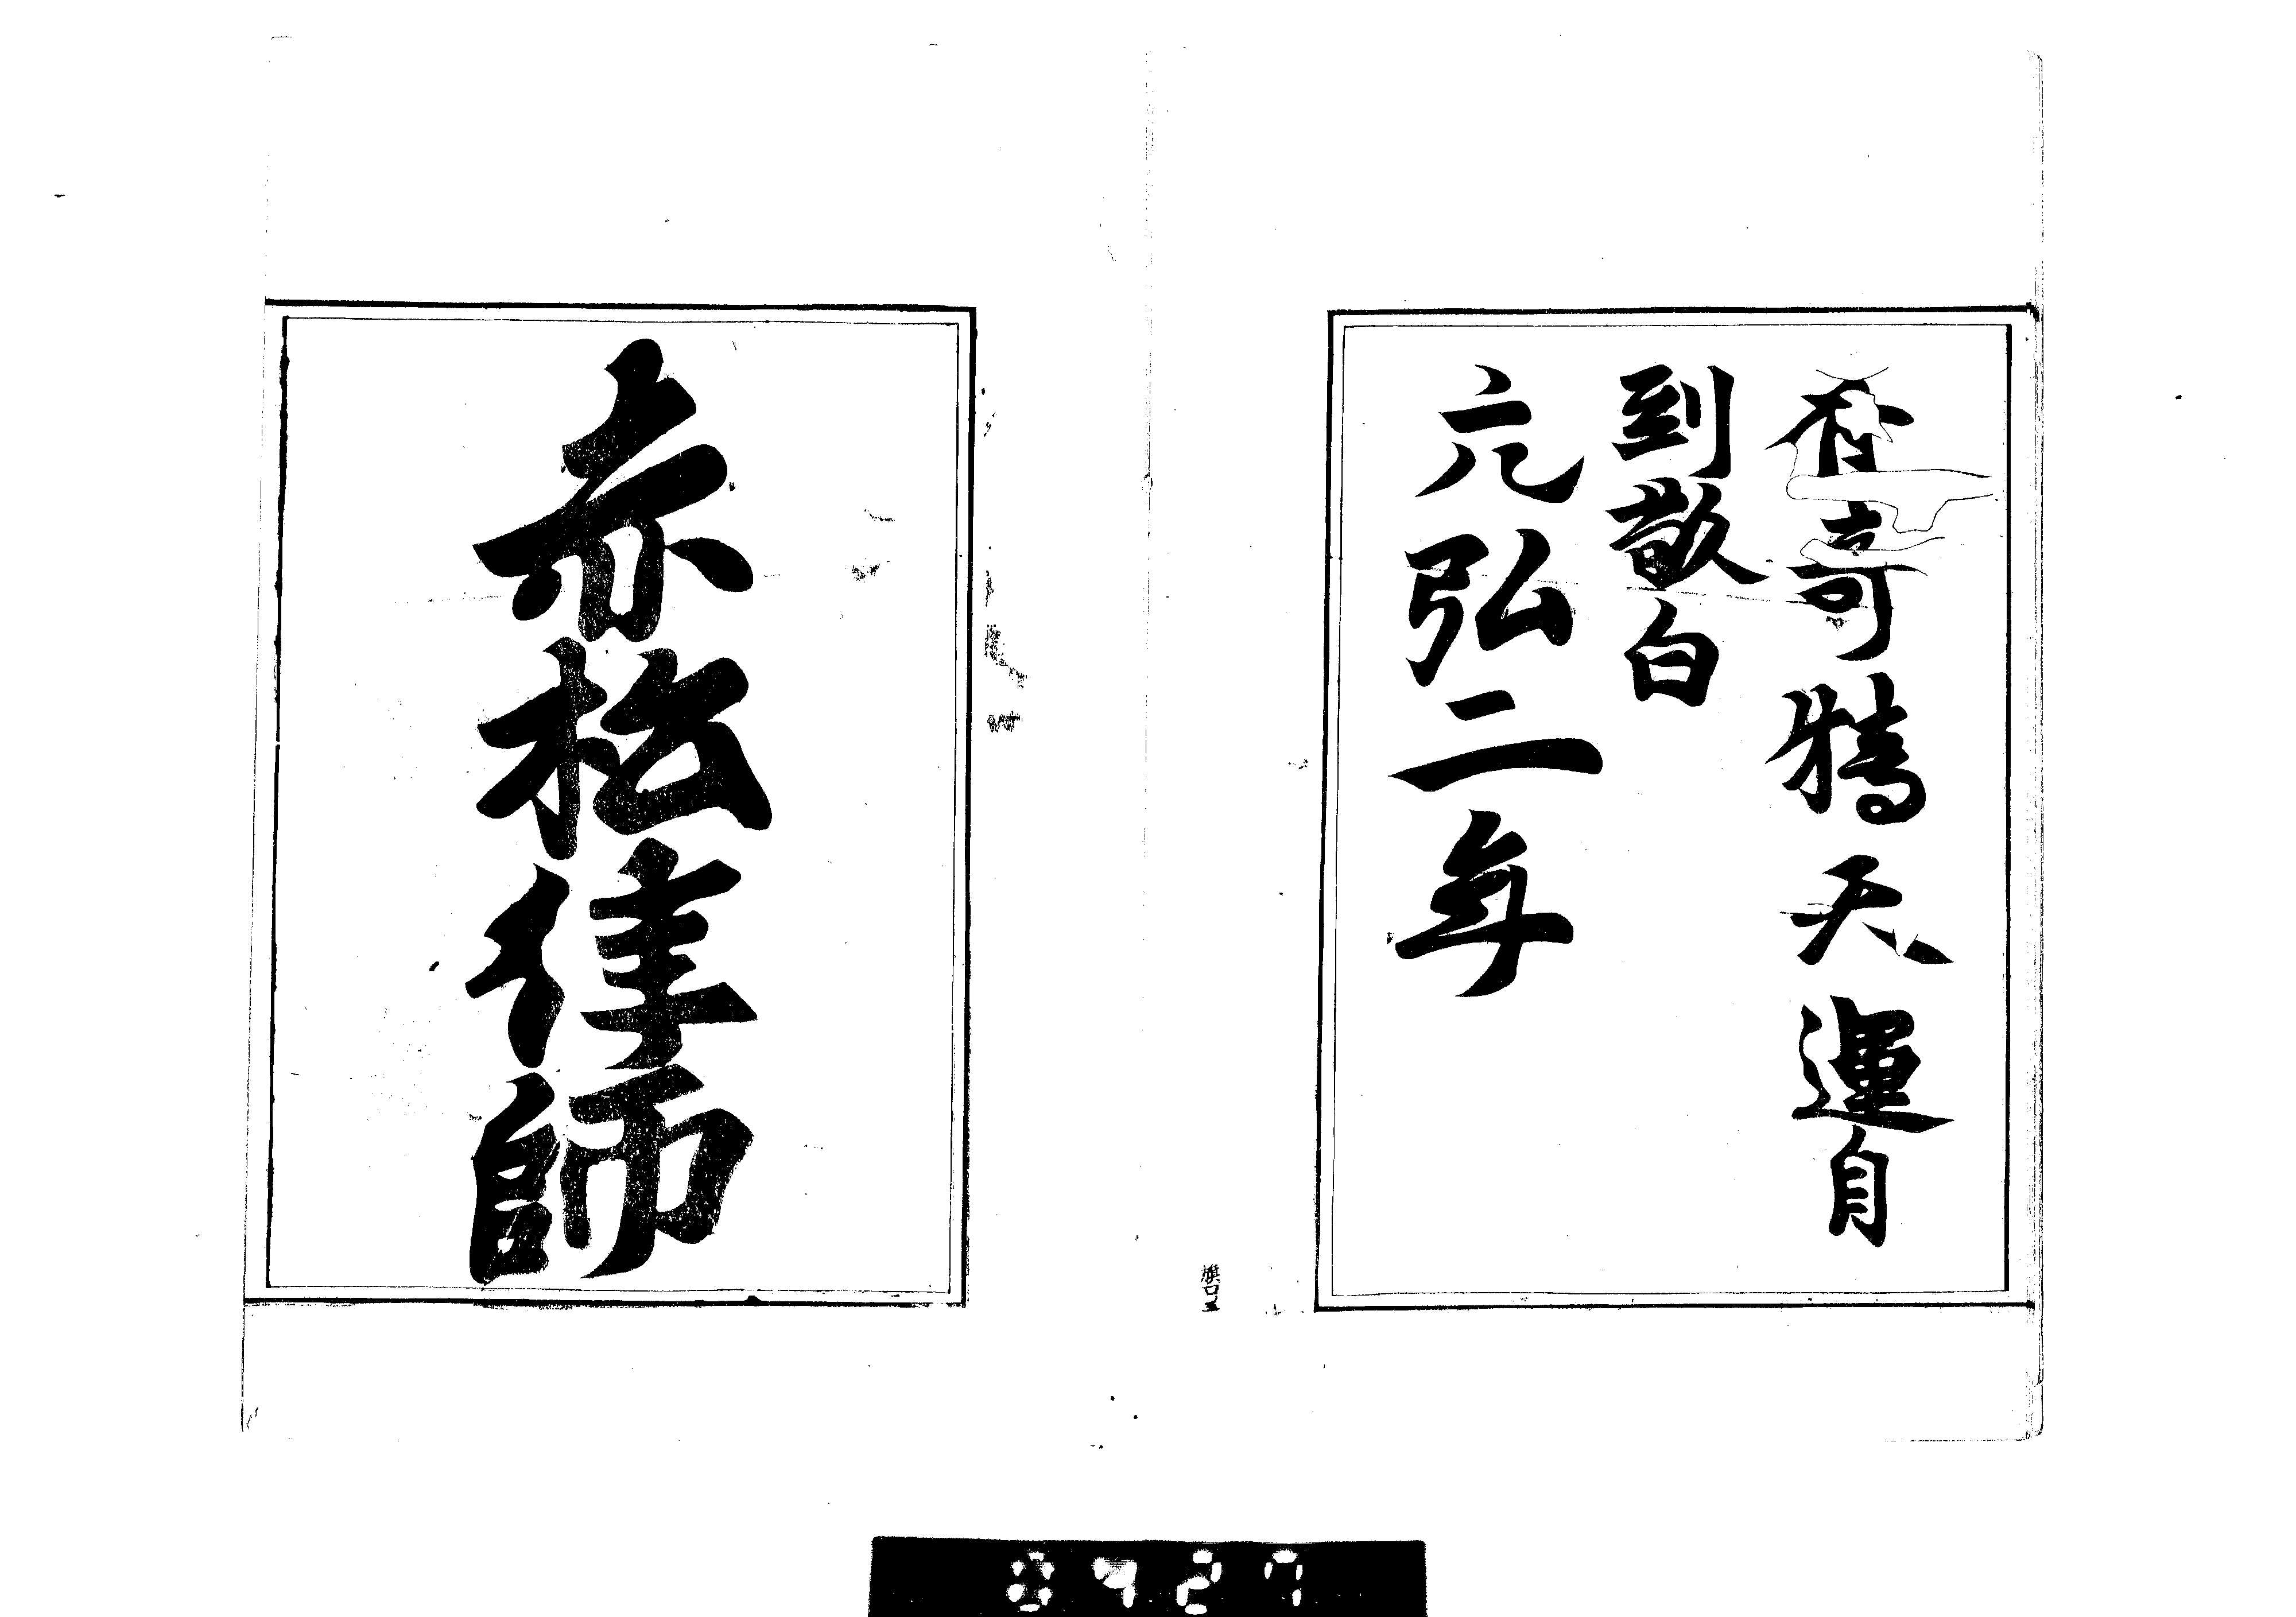 奇鴉天運自
到敬白
元弘二年
赤松律師